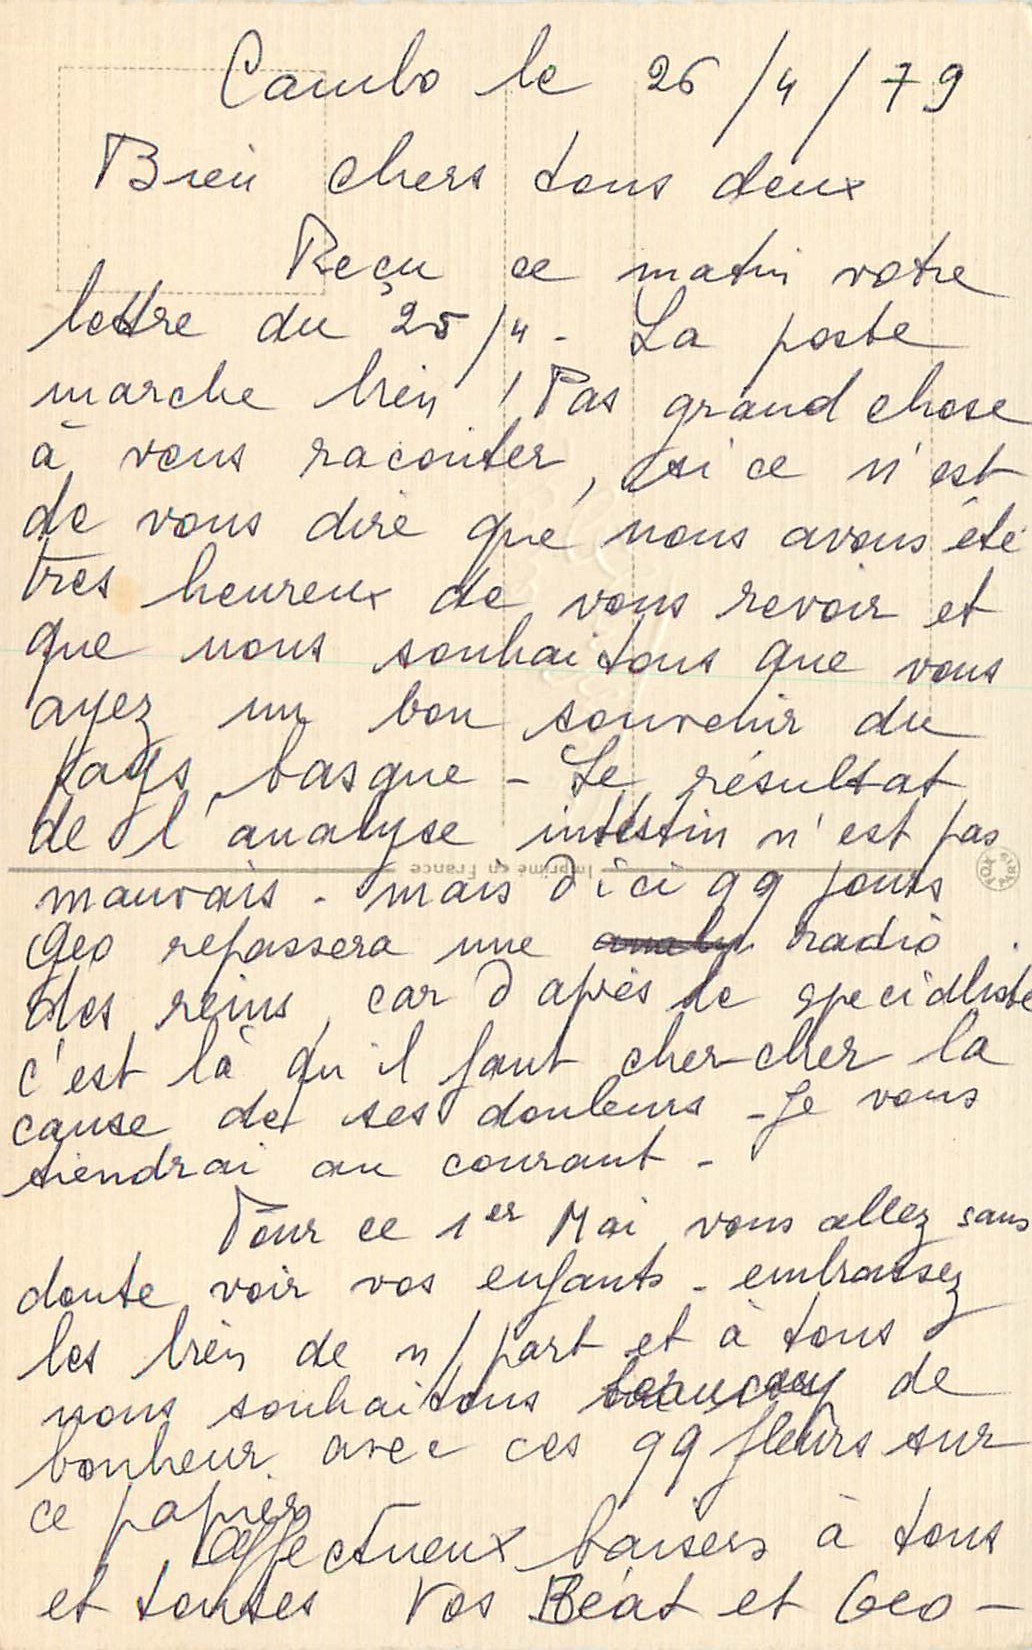 Cambo le 26/4/79
Bien chers tous deux
Reçu ce matin votre
lettre du 25/4 - La poste
marche bien ! Pas grand chose
à vous raconter, si ce n'est
de vous dire que nous avons été
très heureux de vous revoir et
que nous souhaitons que vous
ayez un bon souvenir du
pays basque - Le résultat
de l'analyse intestin n'est pas
Imprimé en France
mauvais - mais d'ici qq jours
Geo repassera une radio
des reins, car d'après le specialiste
c'est là qu'il faut chercher la
cause de ses douleurs - Je vous
tiendrai au courant -
Pour ce 1er Mai vous allez sans
doute voir vos enfants - embrassez
les bien de n/part et à tous
nous souhaitons beaucoup de
bonheur avec ces qq fleurs sur
ce papier
Affectueux baisers à tous
et toutes Vos Béat et Geo -